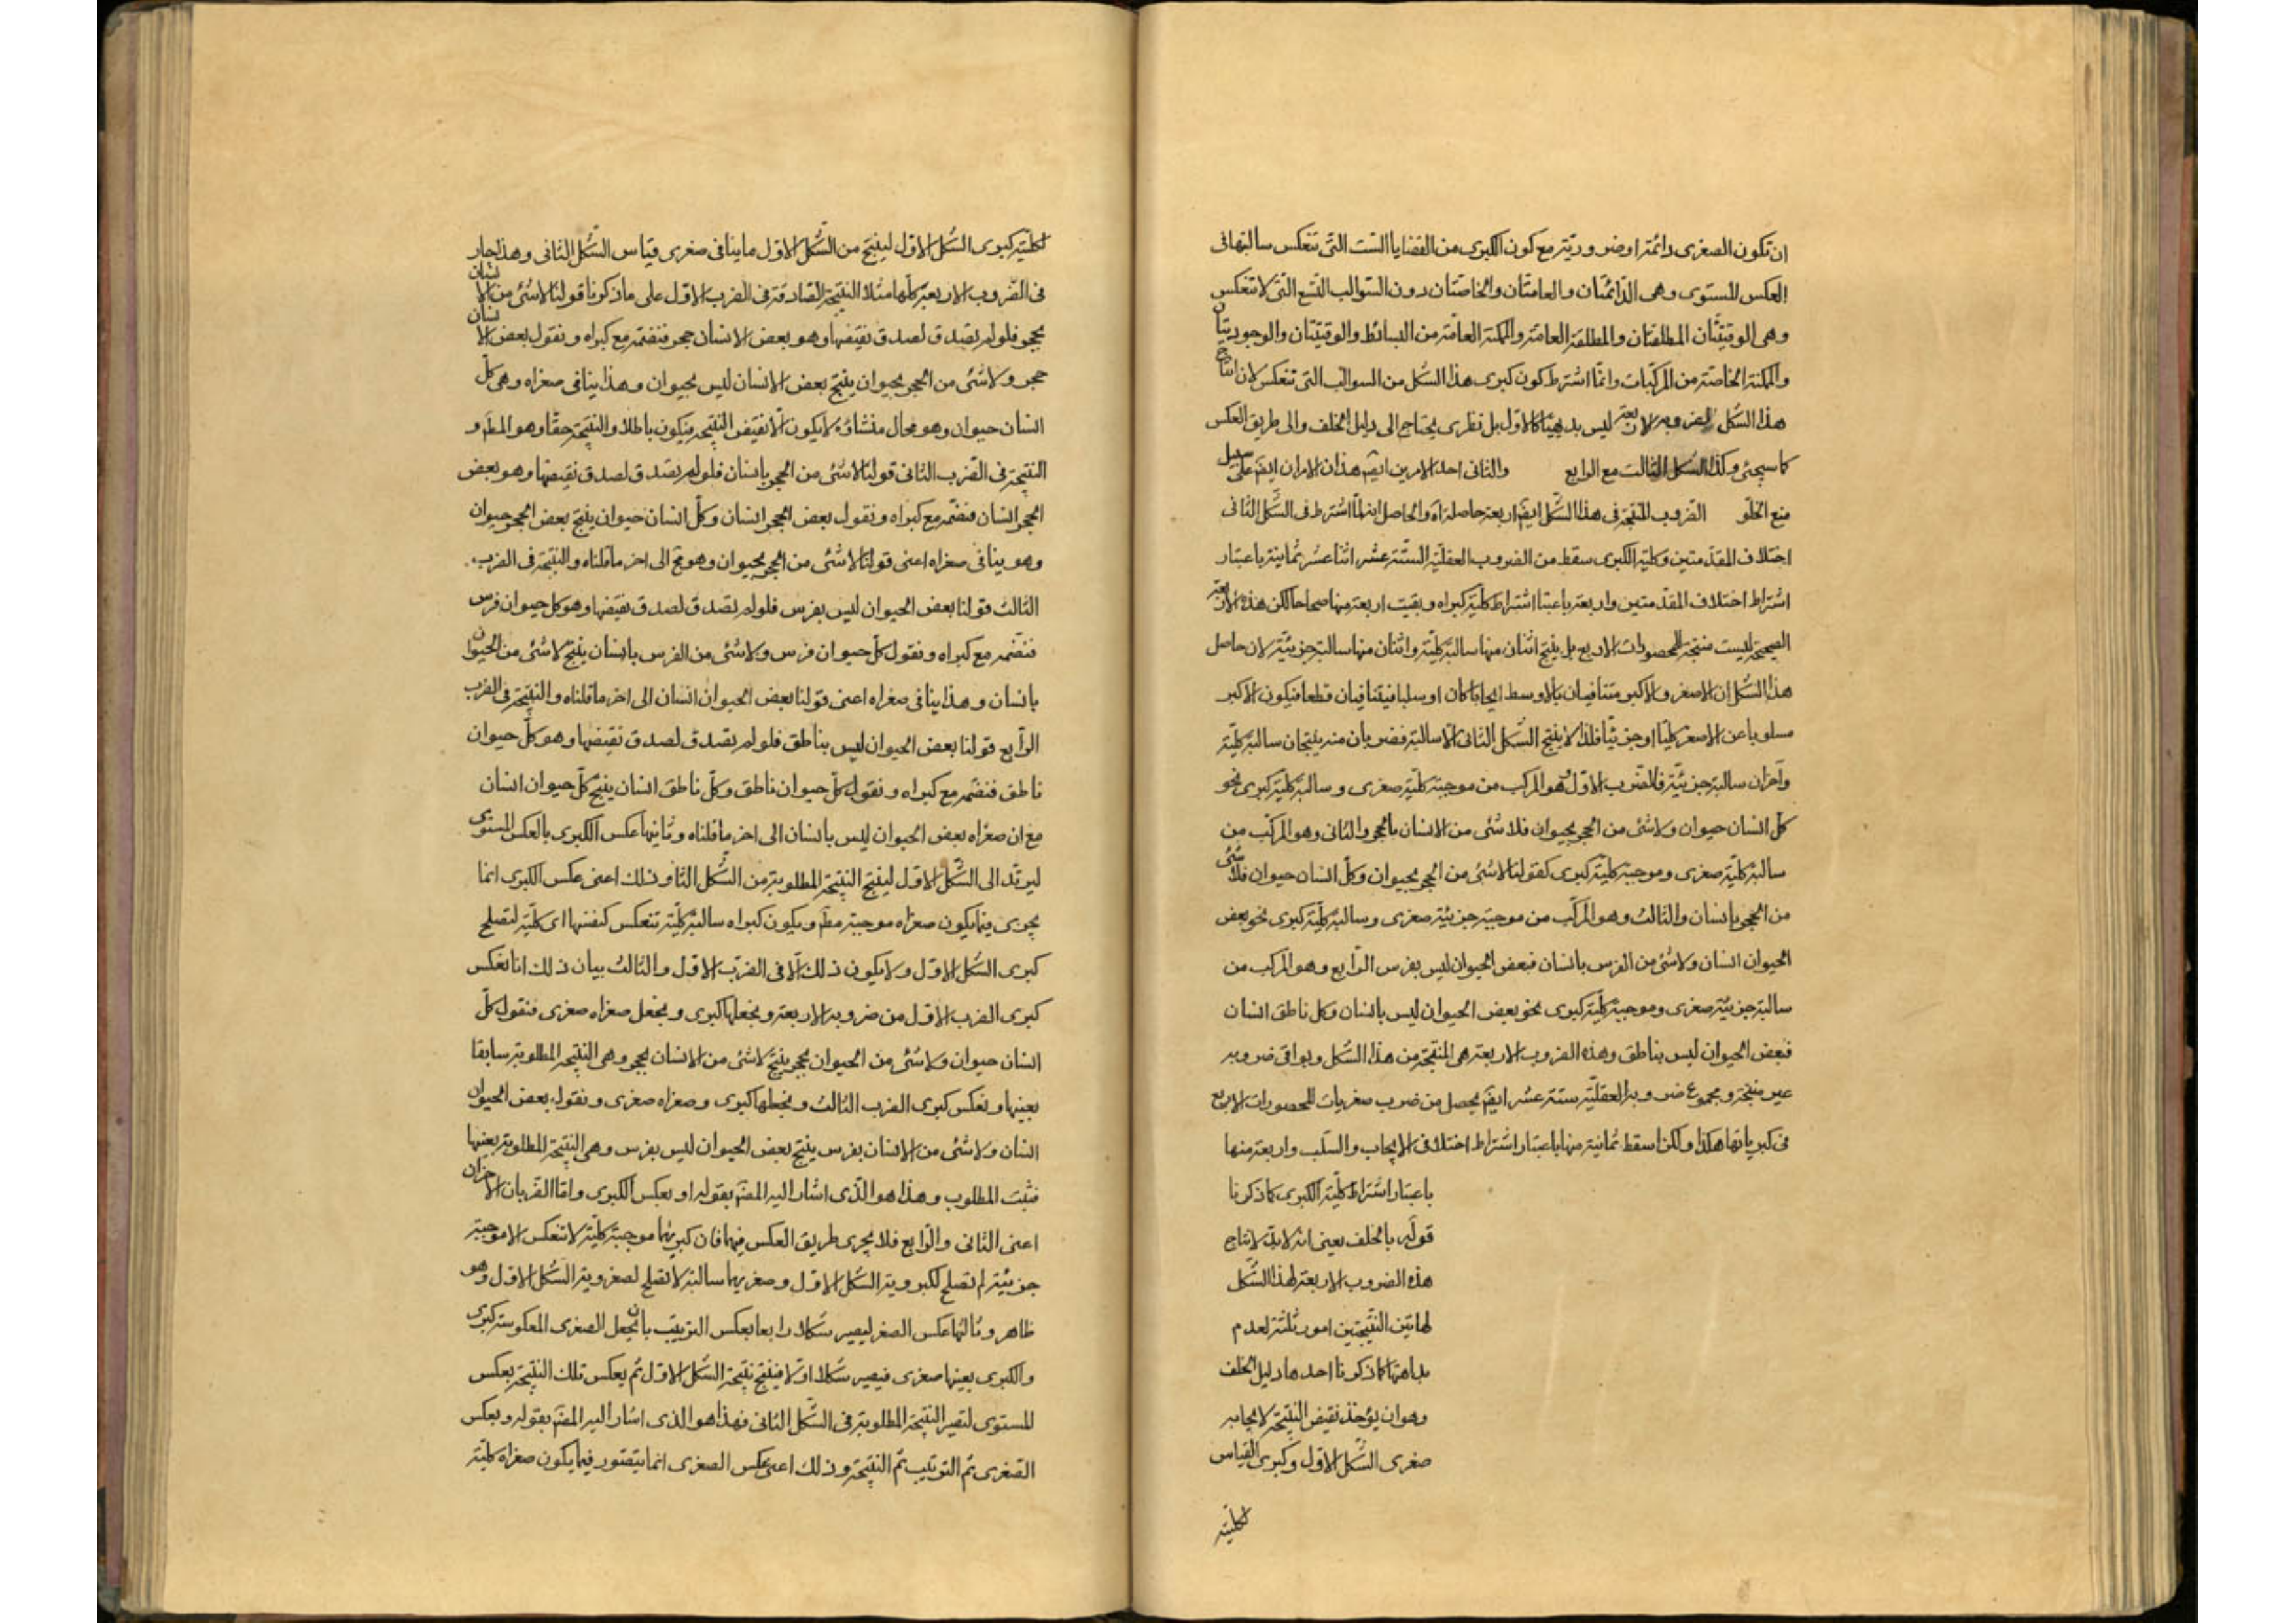 ان تكون الصغرى دائمة او ضرورية مع كون الكبرى من القضايا الست التى تنعكس سالبتها فى
العكس المستوى وهى الدائمتان والعامتان والخاصتان دون السوالب التسع التى لا تنعكس
وهى الوقتيتان المطلقتان والمطلقة العامة والممكنة العامة من البسائط والوقتيتان والوجوديتان
والممكنة الخاصة من المركبات وانما اشترط كون كبرى هذا الشكل من السوالب التى تنعكس لان انتاج
هذا الشكل لضروبه الاربعة ليس بديهيا كالاول بل نظرى يحتاج الى دليل الخلف والى طريق العكس
كما سيجئ وكذا الشكل الثالث مع الرابع والثانى احد الامرين ايضم هذان الامران ايضم على سبيل
منع الخلو الضروب المنتجة فى هذا الشكل ايضم اربعة حاصله انه والحاصل انه لما اشترط فى الشكل الثانى
اختلاف المقدمتين وكلية الكبرى سقط من الضروب العقلية الستة عشر اثنا عشر ثمانية باعتبار
اشتراط اختلاف المقدمتين واربعة باعتبا اشتراط كلية كبراه وبقيت اربعة منها صحاحا لكن هذه الاربعة
الصحيحة ليست منتجة للمحصورات الاربع بل ينتج اثنان منها سالبة كلية واثنان منها سالبة جزيئة لان حاصل
هذا الشكل ان الاصغر والاكبر متنافيان بالاوسط ايجابا كان او سلبا فيتنافيان قطعا فيكون الاكبر
مسلوبا عن الاصغر كليا او جزيئا فلذا لا ينتج الشكل الثانى الا سالبة فضربان منه ينتجان سالبة كلية
وآخران سالبة جزيئة فالضرب الاول هو المركب من موجبة كلية صغرى وسالبة كلية كبرى نحو
كل انسان حيوان ولا شئ من الحجر بحيوان فلا شئ من الانسان بالحجر والثانى وهو المركب من
سالبة كلية صغرى وموجبة كلية كبرى كقولنا لا شئ من الحجر بحيوان وكل انسان حيوان فلا شئ
من الحجر بانسان والثالث وهو المركب من موجبة جزيئة صغرى وسالبة كلية كبرى نحو بعض
الحيوان انسان ولا شئ من الفرس بانسان فبعض الحيوان ليس بفرس الرابع وهو المركب من
سالبة جزيئة صغرى وموجبة كلية كبرى نحو بعض الحيوان ليس بانسان وكل ناطق انسان
فبعض الحيوان ليس بناطق وهذه الضروب الاربعة هى المنتجة من هذا الشكل وبواقى ضروبه
غير منتجة ومجموع ضروبه العقلية ستة عشر ايضم يحصل من ضرب صغريات المحصورات الاربع
فى كبرياتها هكذا ولكن اسقط ثمانية منها باعتبار اشتراط اختلاف الايجاب والسلب واربعة منها
باعتبار اشتراط كلية الكبرى كما ذكرنا
قوله بالخلف يعنى انه لا بد لانتاج
هذه الضروب الاربعة لهذا الشكل
لهاتين النتيجتين امور ثلثة لعدم
بداهتها كما ذكرنا احدها دليل الخلف
وهو ان يؤخذ نقيض النتيجة لايجابه
صغرى الشكل الاول وكبرى القياس
لكلية
لكلية كبرى الشكل الاول لينتج من الشكل الاول ما ينافى صغرى قياس الشكل الثانى وهذا جار
فى الضروب الاربعة كلها مثلا النتيجة الصادقة فى الضرب الاول على ما ذكرنا قولنا لا شئ من الانسان
بحجر فلو لم يصدق لصدق نقيضها وهو بعض الانسان حجر فنضمه مع كبراه ونقول بعض الانسان
حجر ولا شئ من الحجر بحيوان ينتج بعض الانسان ليس بحيوان وهذا ينافى صغراه وهى كل
انسان حيوان وهو محال منشاؤه لا يكون الا نقيض النتيجة فيكون باطلا والنتيجة حقا وهو المط و
النتيجة فى الضرب الثانى قولنا لا شئ من الحجر بانسان فلو لم يصدق لصدق نقيضها وهو بعض
الحجر انسان فنضمه مع كبراه ونقول بعض الحجر انسان وكل انسان حيوان ينتج بعض الحجر حيوان
وهو ينافى صغراه اعنى قولنا لا شئ من الحجر بحيوان وهو مح الى اخر ما قلناه والنتيجة فى الضرب
الثالث قولنا بعض الحيوان ليس بفرس فلو لم يصدق لصدق نقيضها وهو كل حيوان فرس
فنضمه مع كبراه ونقول كل حيوان فرس ولا شئ من الفرس بانسان ينتج لا شئ من الحيوان
بانسان وهذا ينافى صغراه اعنى قولنا بعض الحيوان انسان الى اخر ما قلناه والنتيجة فى الضرب
الرابع قولنا بعض الحيوان ليس بناطق فلو لم يصدق لصدق نقيضها وهو كل حيوان
ناطق فنضمه مع كبراه ونقول كل حيوان ناطق وكل ناطق انسان ينتج كل حيوان انسان
مع ان صغراه بعض الحيوان ليس بانسان الى اخر ما قلناه وثانيها عكس الكبرى بالعكس المستوى
ليرتد الى الشكل الاول لينتج النتيجة المطلوبة من الشكل الثا وذلك اعنى عكس الكبرى انما
يجرى فيما يكون صغراه موجبة مط ويكون كبراه سالبة كلية تنعكس كنفسها اى كلية لتصلح
كبرى الشكل الاول ولا يكون ذلك الا فى الضرب الاول والثالث بيان ذلك انا نعكس
كبرى الضرب الاول من ضروبه الاربعة ونجعلها كبرى ونجعل صغراه صغرى فنقول كل
انسان حيوان ولا شئ من الحيوان بحجر ينتج لا شئ من الانسان بحجر وهى النتيجة المطلوبة سابقا
بعينها ونعكس كبرى الضرب الثالث ونجعلها كبرى وصغراه صغرى ونقول بعض الحيوان
انسان ولا شئ من الانسان بفرس ينتج بعض الحيوان ليس بفرس وهى النتيجة المطلوبة بعينها
فثبت المطلوب وهذا هو الذى اشار اليه المصم بقوله او بعكس الكبرى واما الضربان الاخران
اعنى الثانى والرابع فلا يجرى طريق العكس فيهما فان كبريهما موجبة كلية لا تنعكس الا موجبة
جزيئة لم تصلح لكبروية الشكل الاول وصغريهما سالبة لا تصلح لصغروية الشكل الاول وهو
ظاهر وثالثها عكس الصغر ليصير شكلا رابعا بعكس الترتيب بان تجعل الصغرى المعكوسة كبرى
والكبرى بعينها صغرى فيصير شكلا اولا فينتج نتيجة الشكل الاول ثم يعكس تلك النتيجة بعكس
المستوى لتصير النتيجة المطلوبة فى الشكل الثانى فهذا هو الذى اشار اليه المصم بقوله وبعكس
الصغرى ثم الترتيب ثم النتيجة وذلك اعنى عكس الصغرى انما يتصور فيما يكون صغراه كلية